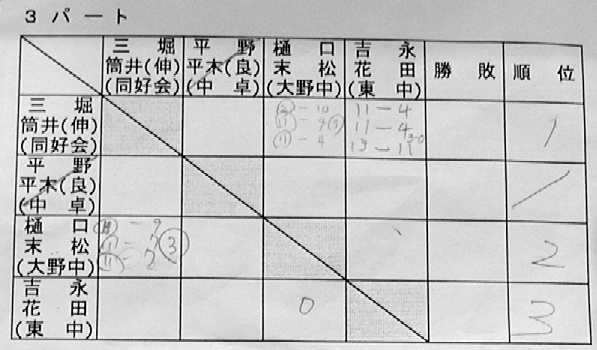 3パート
三堀 平野 樋口 吉永
筒井(伸) 平木(良) 末松 花田 勝敗 順位
(同好会) (中卓) (大野中) (東中)
三堀 11-4
筒井(伸) 11-4 1
(同好会) 13-11
平野
平木(良)
(中卓)
樋口
末松 3 2
(大野中)
吉永
花田 0 3
(東中)